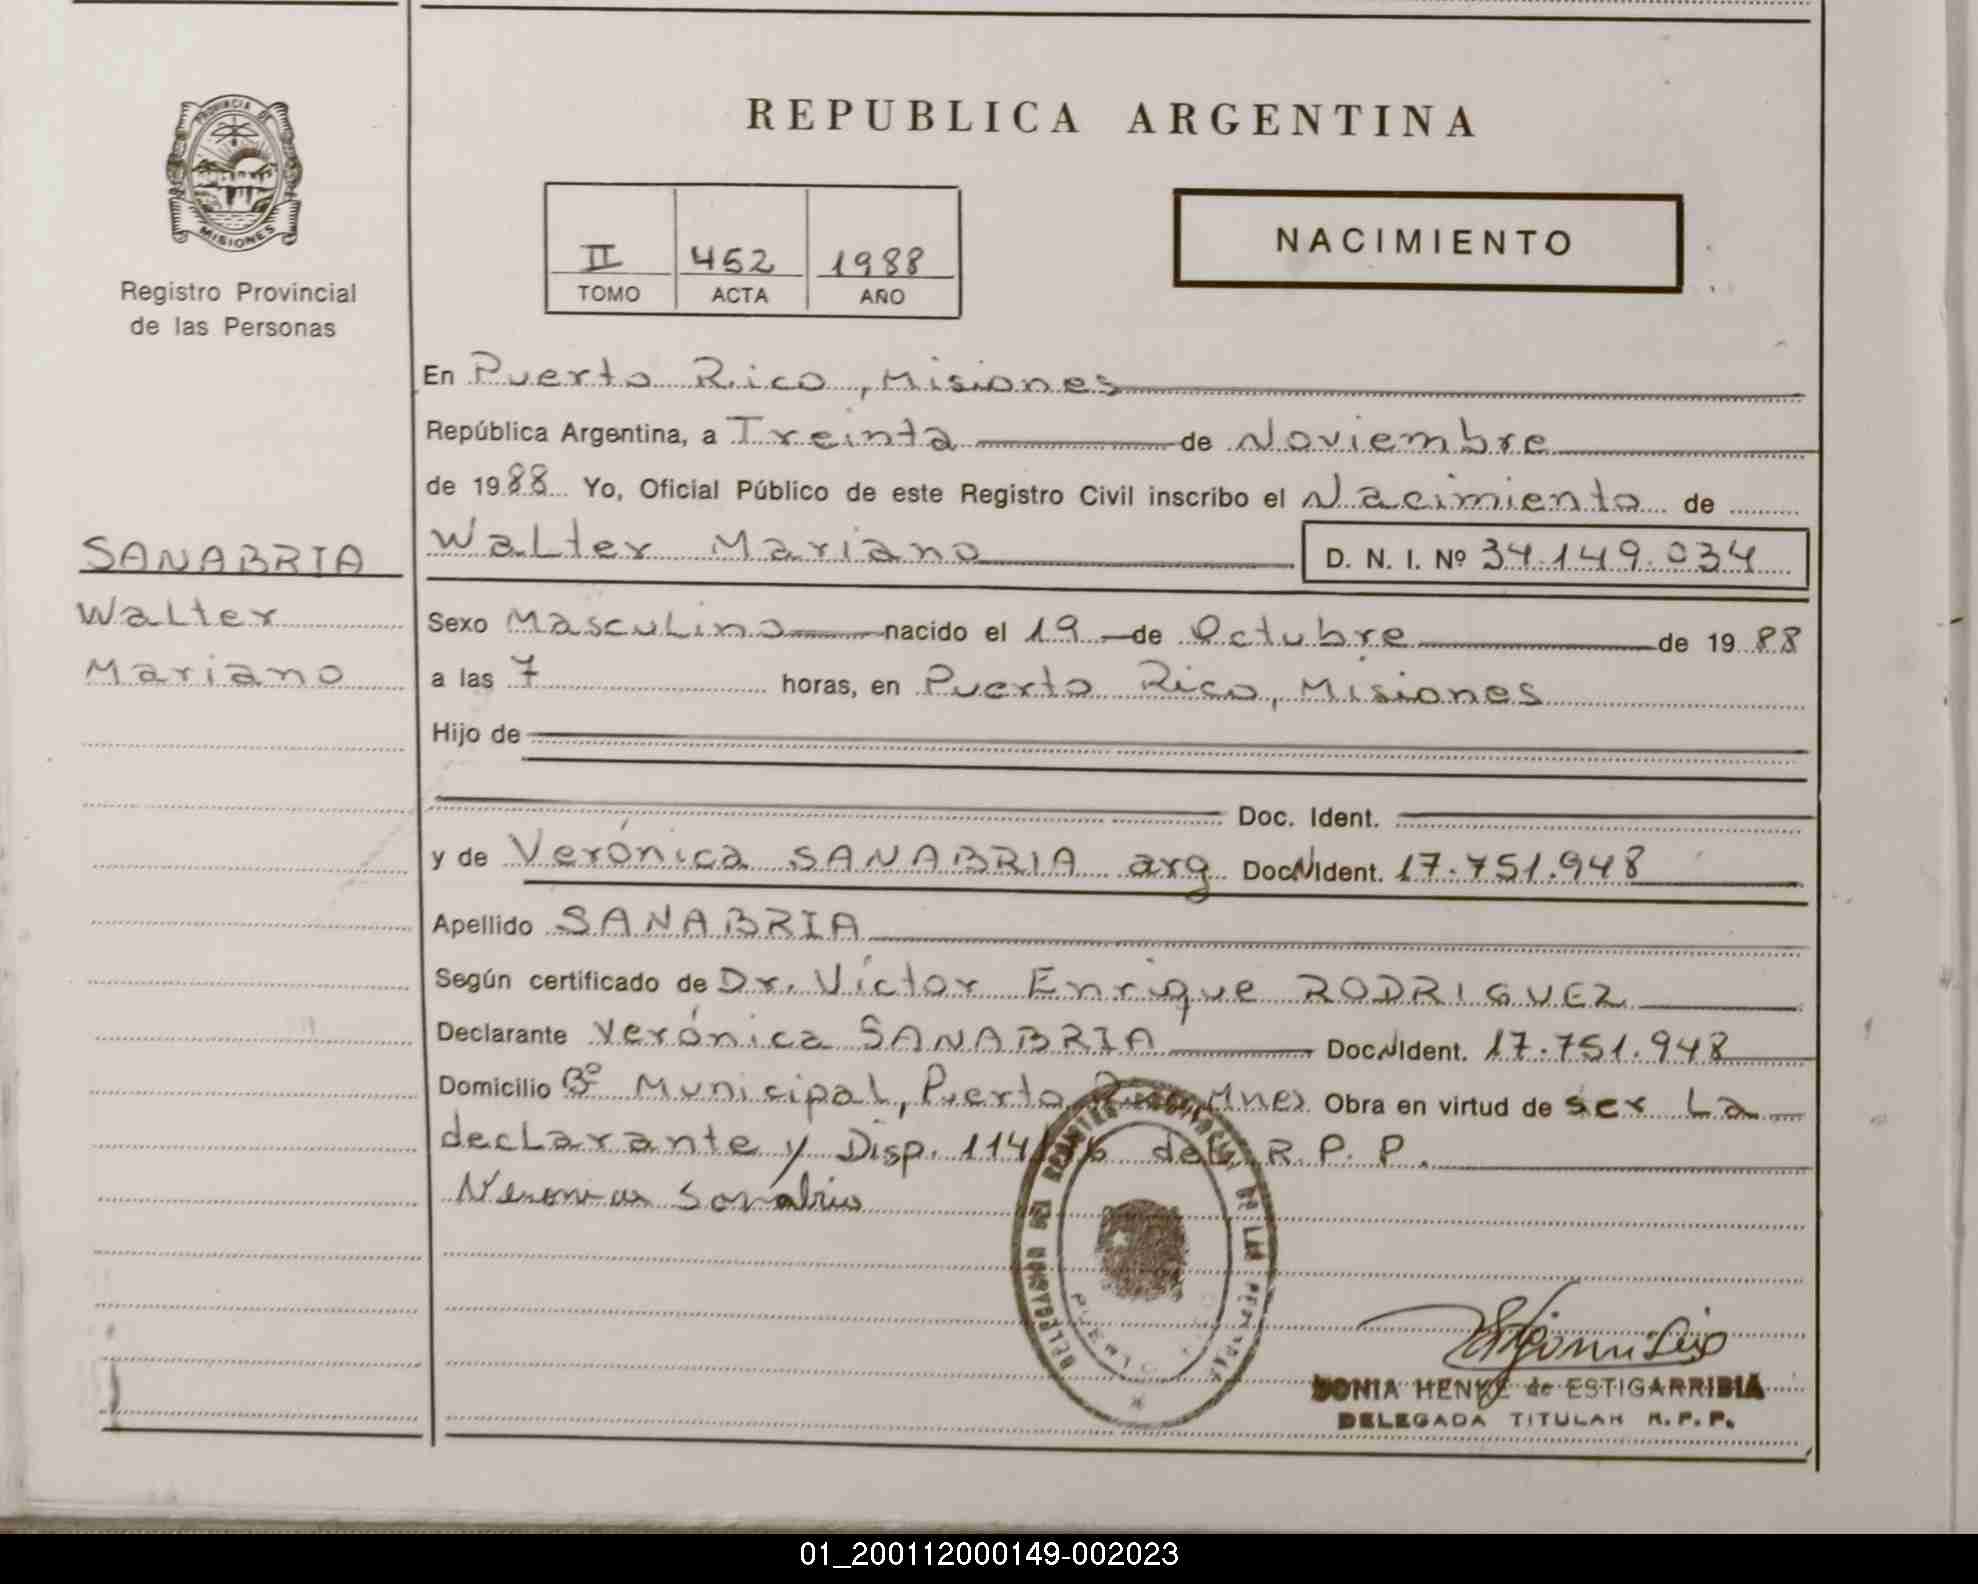 PROVINCIA DE
MISIONES
Registro Provincial
de las Personas
REPUBLICA ARGENTINA
II 452 1988
TOMO ACTA AÑO
NACIMIENTO
En Puerto Rico, Misiones
República Argentina, a Treinta de Noviembre
de 1988 Yo, Oficial Público de este Registro Civil inscribo el Nacimiento de
SANABRIA
Walter
Mariano
Walter Mariano D. N. I. Nº 34.149.034
Sexo Masculino nacido el 19 de Octubre de 1988
a las 7 horas, en Puerto Rico, Misiones
Hijo de
Doc. Ident.
y de Verónica SANABRIA arg Doc N Ident. 17.751.948
Apellido SANABRIA
Según certificado de Dr. Víctor Enrique RODRIGUEZ
Declarante Verónica SANABRIA Doc N Ident. 17.751.948
Domicilio Bº Municipal, Puerto Rico Mnes Obra en virtud de ser La
declarante y Disp. 114 del R.P.P.
Veronica Sanabria
DELEGACION DEL REGISTRO PROVINCIAL DE LAS PERSONAS
PUERTO RICO
SONIA HENKE de ESTIGARRIBIA
DELEGADA TITULAR R.P.P.
01_200112000149-002023